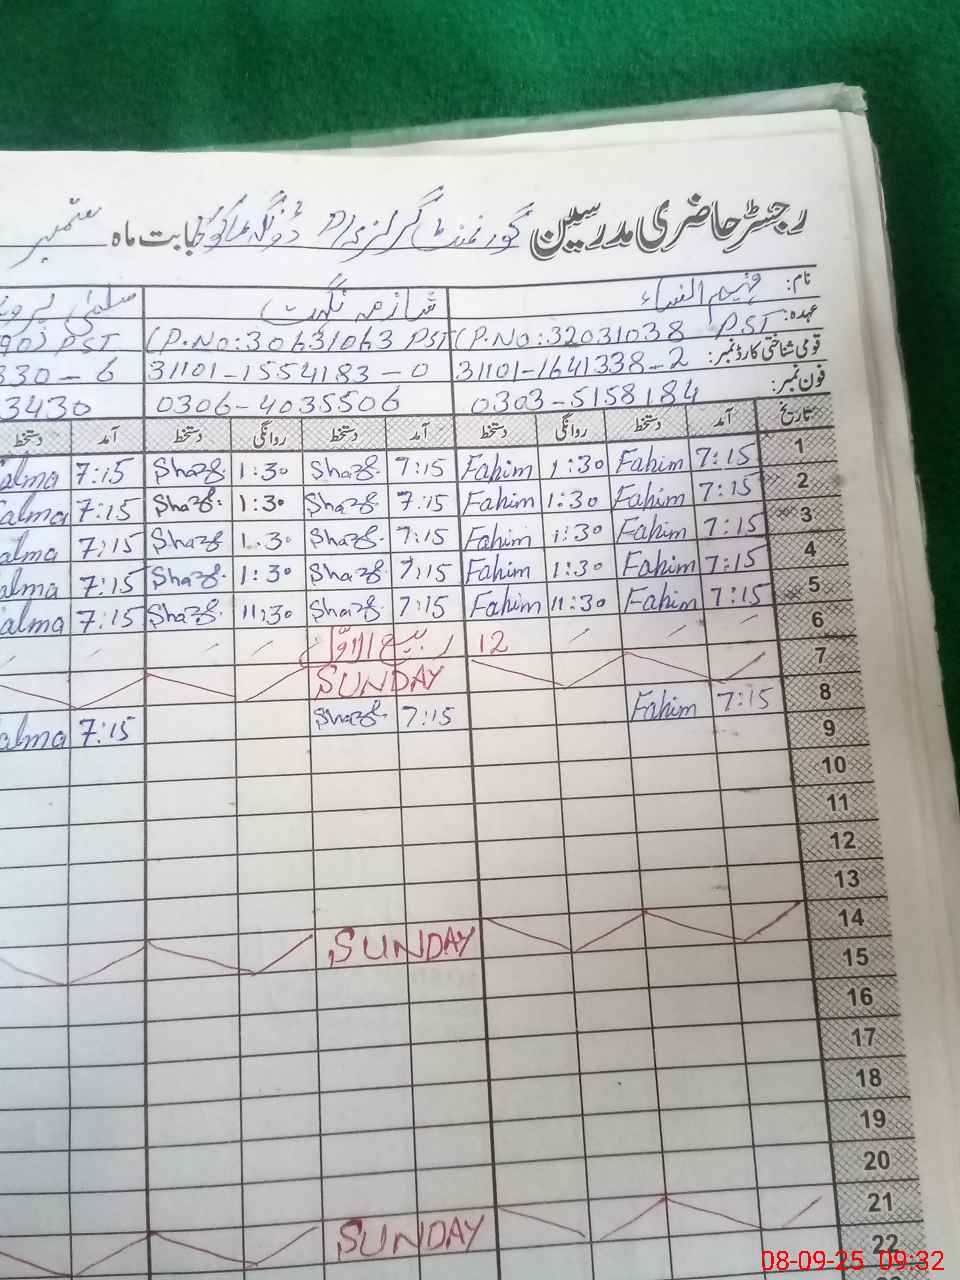 رجسٹر حاضری مدرسین گورنمنٹ گرلز بابت ماہ ستمبر
نام: فہیم النساء شازمہ نگہت سلمیٰ
عہدہ: PST (P.No:32031038 PST (P.No:30631063 PST
قومی شناختی کارڈ نمبر: 31101-1641338-2 31101-1554183-0 330-6
فون نمبر: 0303-5158184 0306-4035506 3430
تاریخ آمد دستخط روانگی دستخط آمد دستخط روانگی دستخط آمد دستخط
1 7:15 Fahim 1:30 Fahim 7:15 Shazf. 1:30 Shazf. 7:15 alma
2 7:15 Fahim 1:30 Fahim 7:15 Shazf. 1:30 Shazf. 7:15 alma
3 7:15 Fahim 1:30 Fahim 7:15 Shazf. 1:30 Shazf. 7:15 alma
4 7:15 Fahim 1:30 Fahim 7:15 Shazf. 1:30 Shazf. 7:15 alma
5 7:15 Fahim 11:30 Fahim 7:15 Shazf. 11:30 Shazf. 7:15 alma
6 12 ربیع الاوّل
7 SUNDAY
8 7:15 Fahim 7:15 Shazf. 7:15 alma
9
10
11
12
13
14 SUNDAY
15
16
17
18
19
20
21 SUNDAY
22
08-09-25 09:32